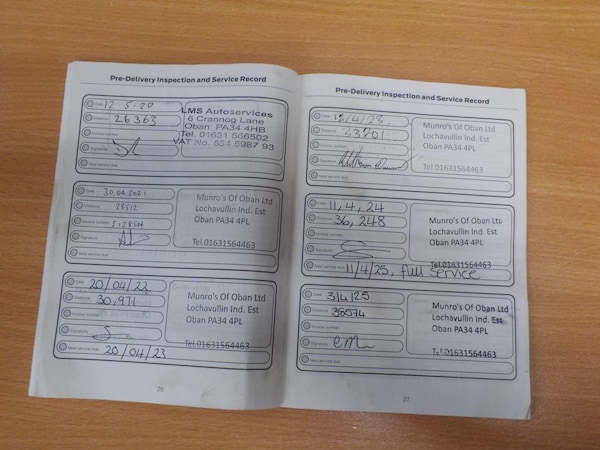 Pre-Delivery Inspection and Service Record
Date 12-5-20
Distance 26363
Invoice number
Signature
Next service due
LMS Autoservices
6 Crannog Lane
Oban PA34 4HB
Tel. 01631 566502
VAT No. 534 5987 93
Date 30.04.2021
Distance 28512
Invoice number
Signature
Next service due
Munro's Of Oban Ltd
Lochavullin Ind. Est
Oban PA34 4PL
Tel.01631564463
Date 20/04/22
Distance 30,971
Invoice number
Signature
Next service due 20/04/23
Munro's Of Oban Ltd
Lochavullin Ind. Est
Oban PA34 4PL
Tel.01631564463
26
Pre-Delivery Inspection and Service Record
Date 12/4/23
Distance 33701
Invoice number
Signature
Next service due
Munro's Of Oban Ltd
Lochavullin Ind. Est
Oban PA34 4PL
Tel.01631564463
Date 11,4,24
Distance 36,248
Invoice number
Signature
Next service due 11/4/25, full service
Munro's Of Oban Ltd
Lochavullin Ind. Est
Oban PA34 4PL
Tel.01631564463
Date 3/4/25
Distance 38574
Invoice number
Signature
Next service due
Munro's Of Oban Ltd
Lochavullin Ind. Est
Oban PA34 4PL
Tel.01631564463
27